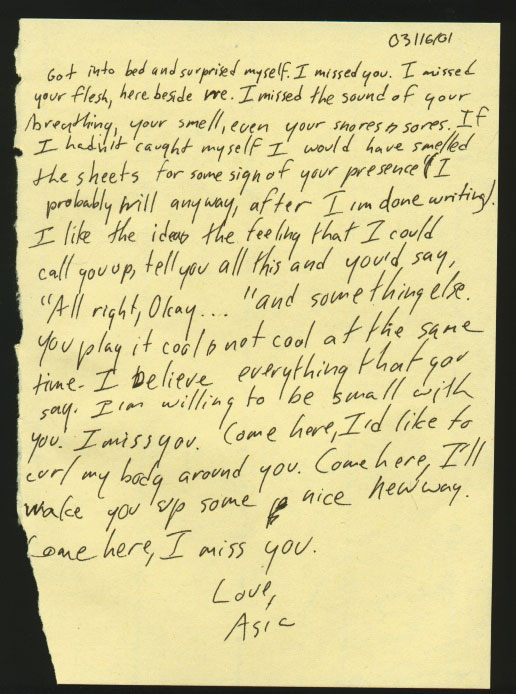 03/16/01
Got into bed and surprised myself. I missed you. I missed
your flesh, here beside me. I missed the sound of your
breathing, your smell, even your snores n sores. If
I hadn't caught myself I would have smelled
the sheets for some sign of your presence (I
probably will anyway, after I'm done writing).
I like the idea the feeling that I could
call you up, tell you all this and you'd say,
"All right, Okay... " and something else.
You play it cool n not cool at the same
time - I believe everything that you
say. I'm willing to be small with
you. I miss you. Come here, I'd like to
curl my body around you. Come here, I'll
wake you up some nice new way.
Come here, I miss you.
Love,
Asia